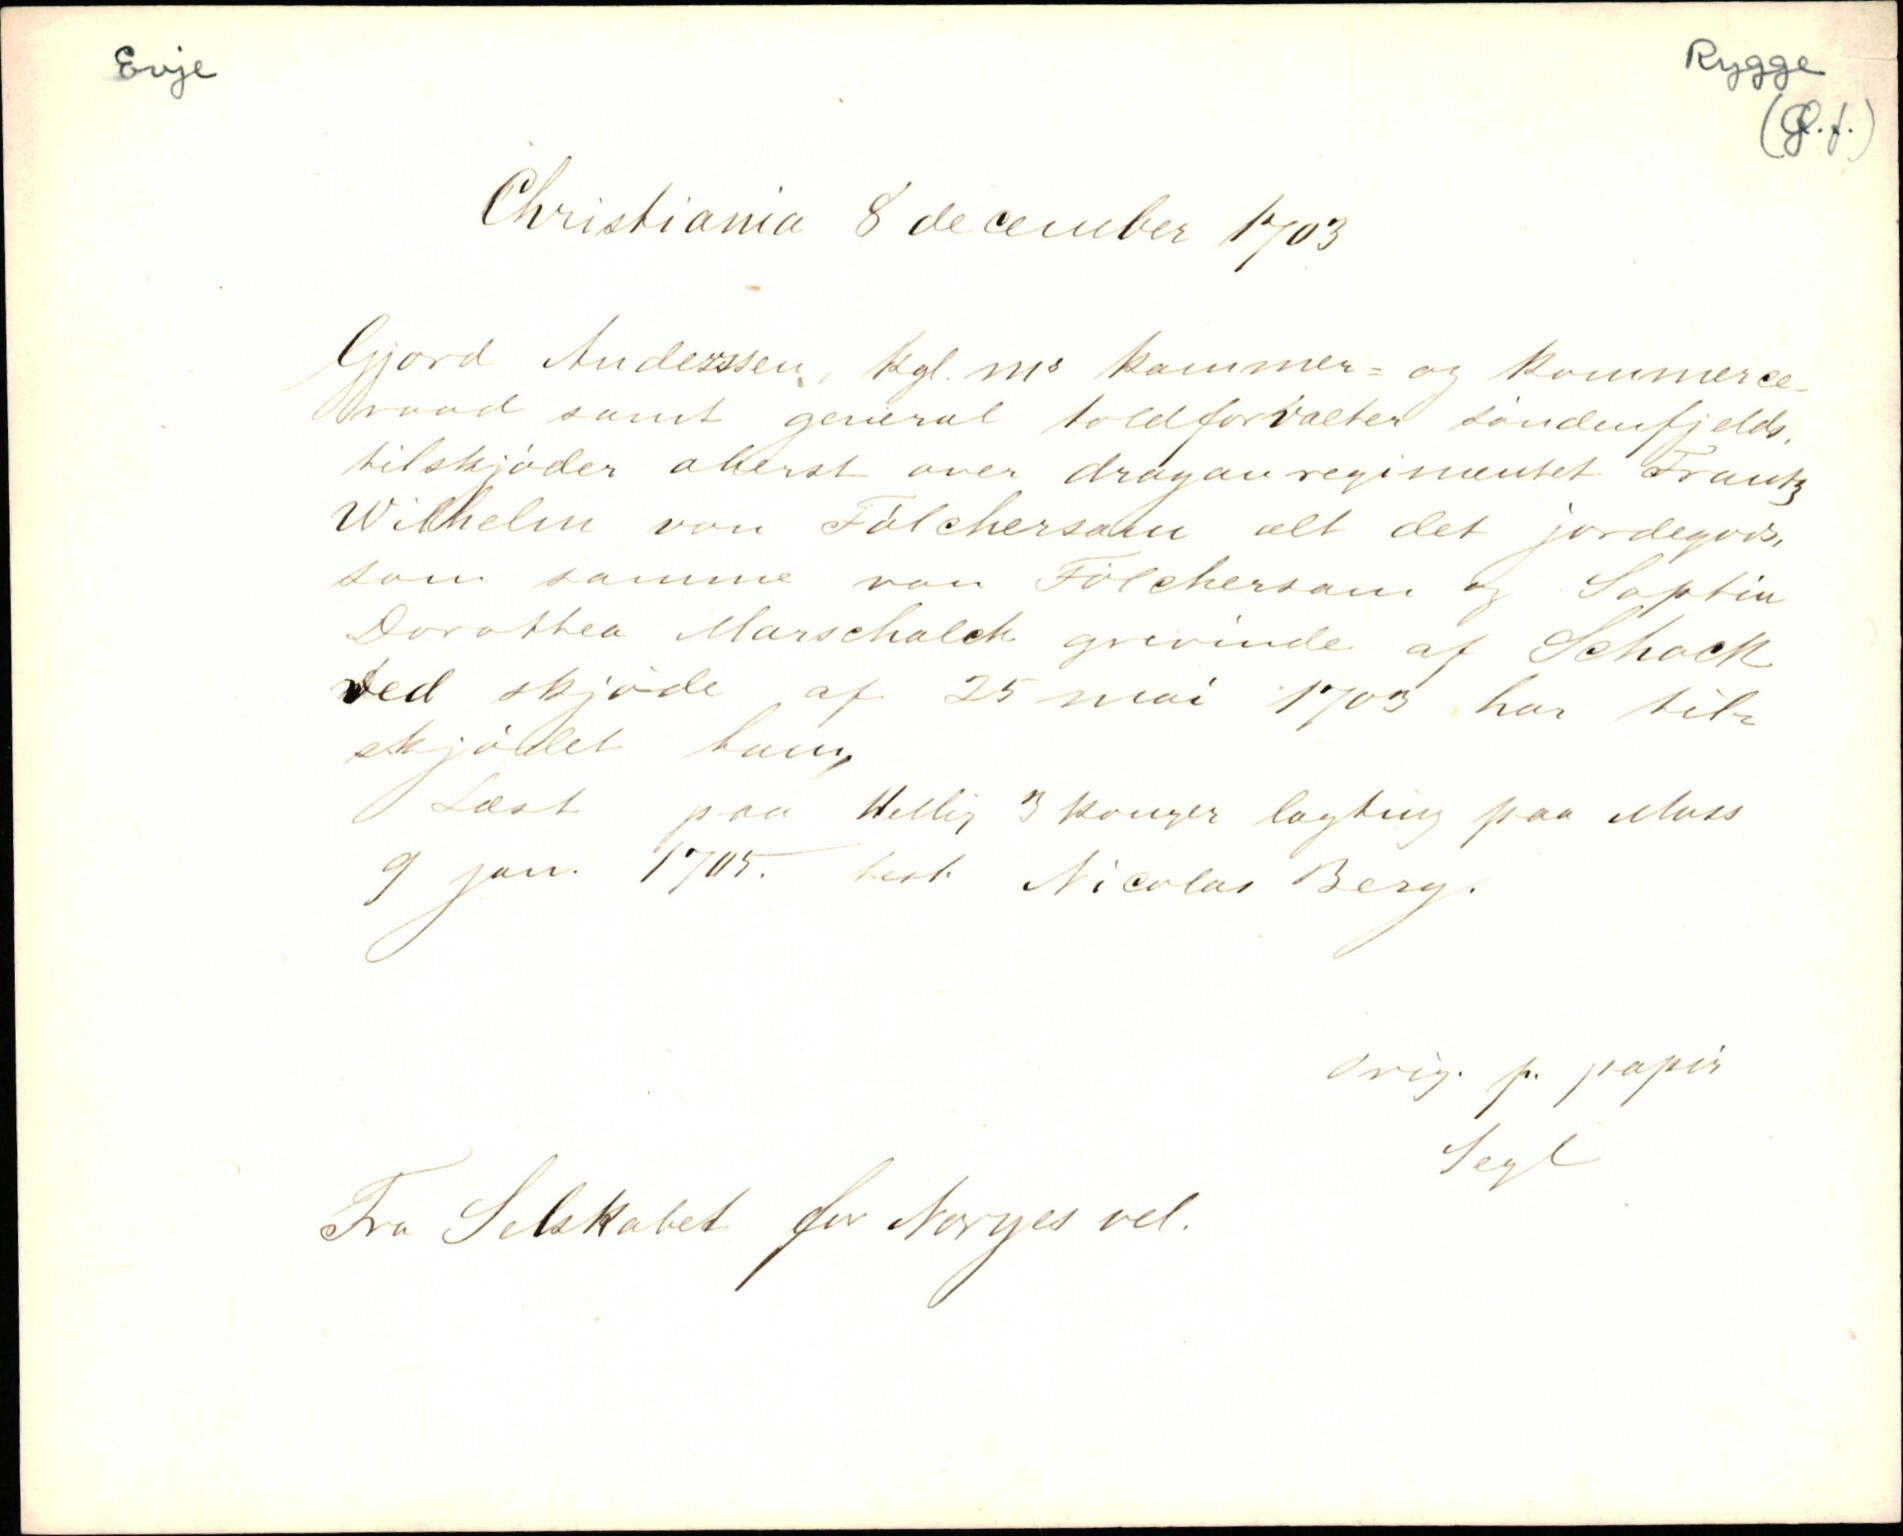 Evje
Rygge
(Ø.f.)
Christiania 8 december 1703
Gjord Anderssen, kgl. ms kammer= og kommerce-
raad samt general toldforvalter søndenfjelds,
tilskjøder oberst over dragonregimentet Frantz
Wilhelm von Fölchersam alt det jordegods,
som samme von Fölchersam og Sophia
Dorothea Marschalck grevinde af Schack
ved skjøde af 25 mai 1703 har til-
skjødet ham,
Læst paa Hellig 3 konger lagting paa Moss
9 jan. 1705. test. Nicolas Berg.
Orig. p. papir
Segl
Fra Selskabet for Norges vel.